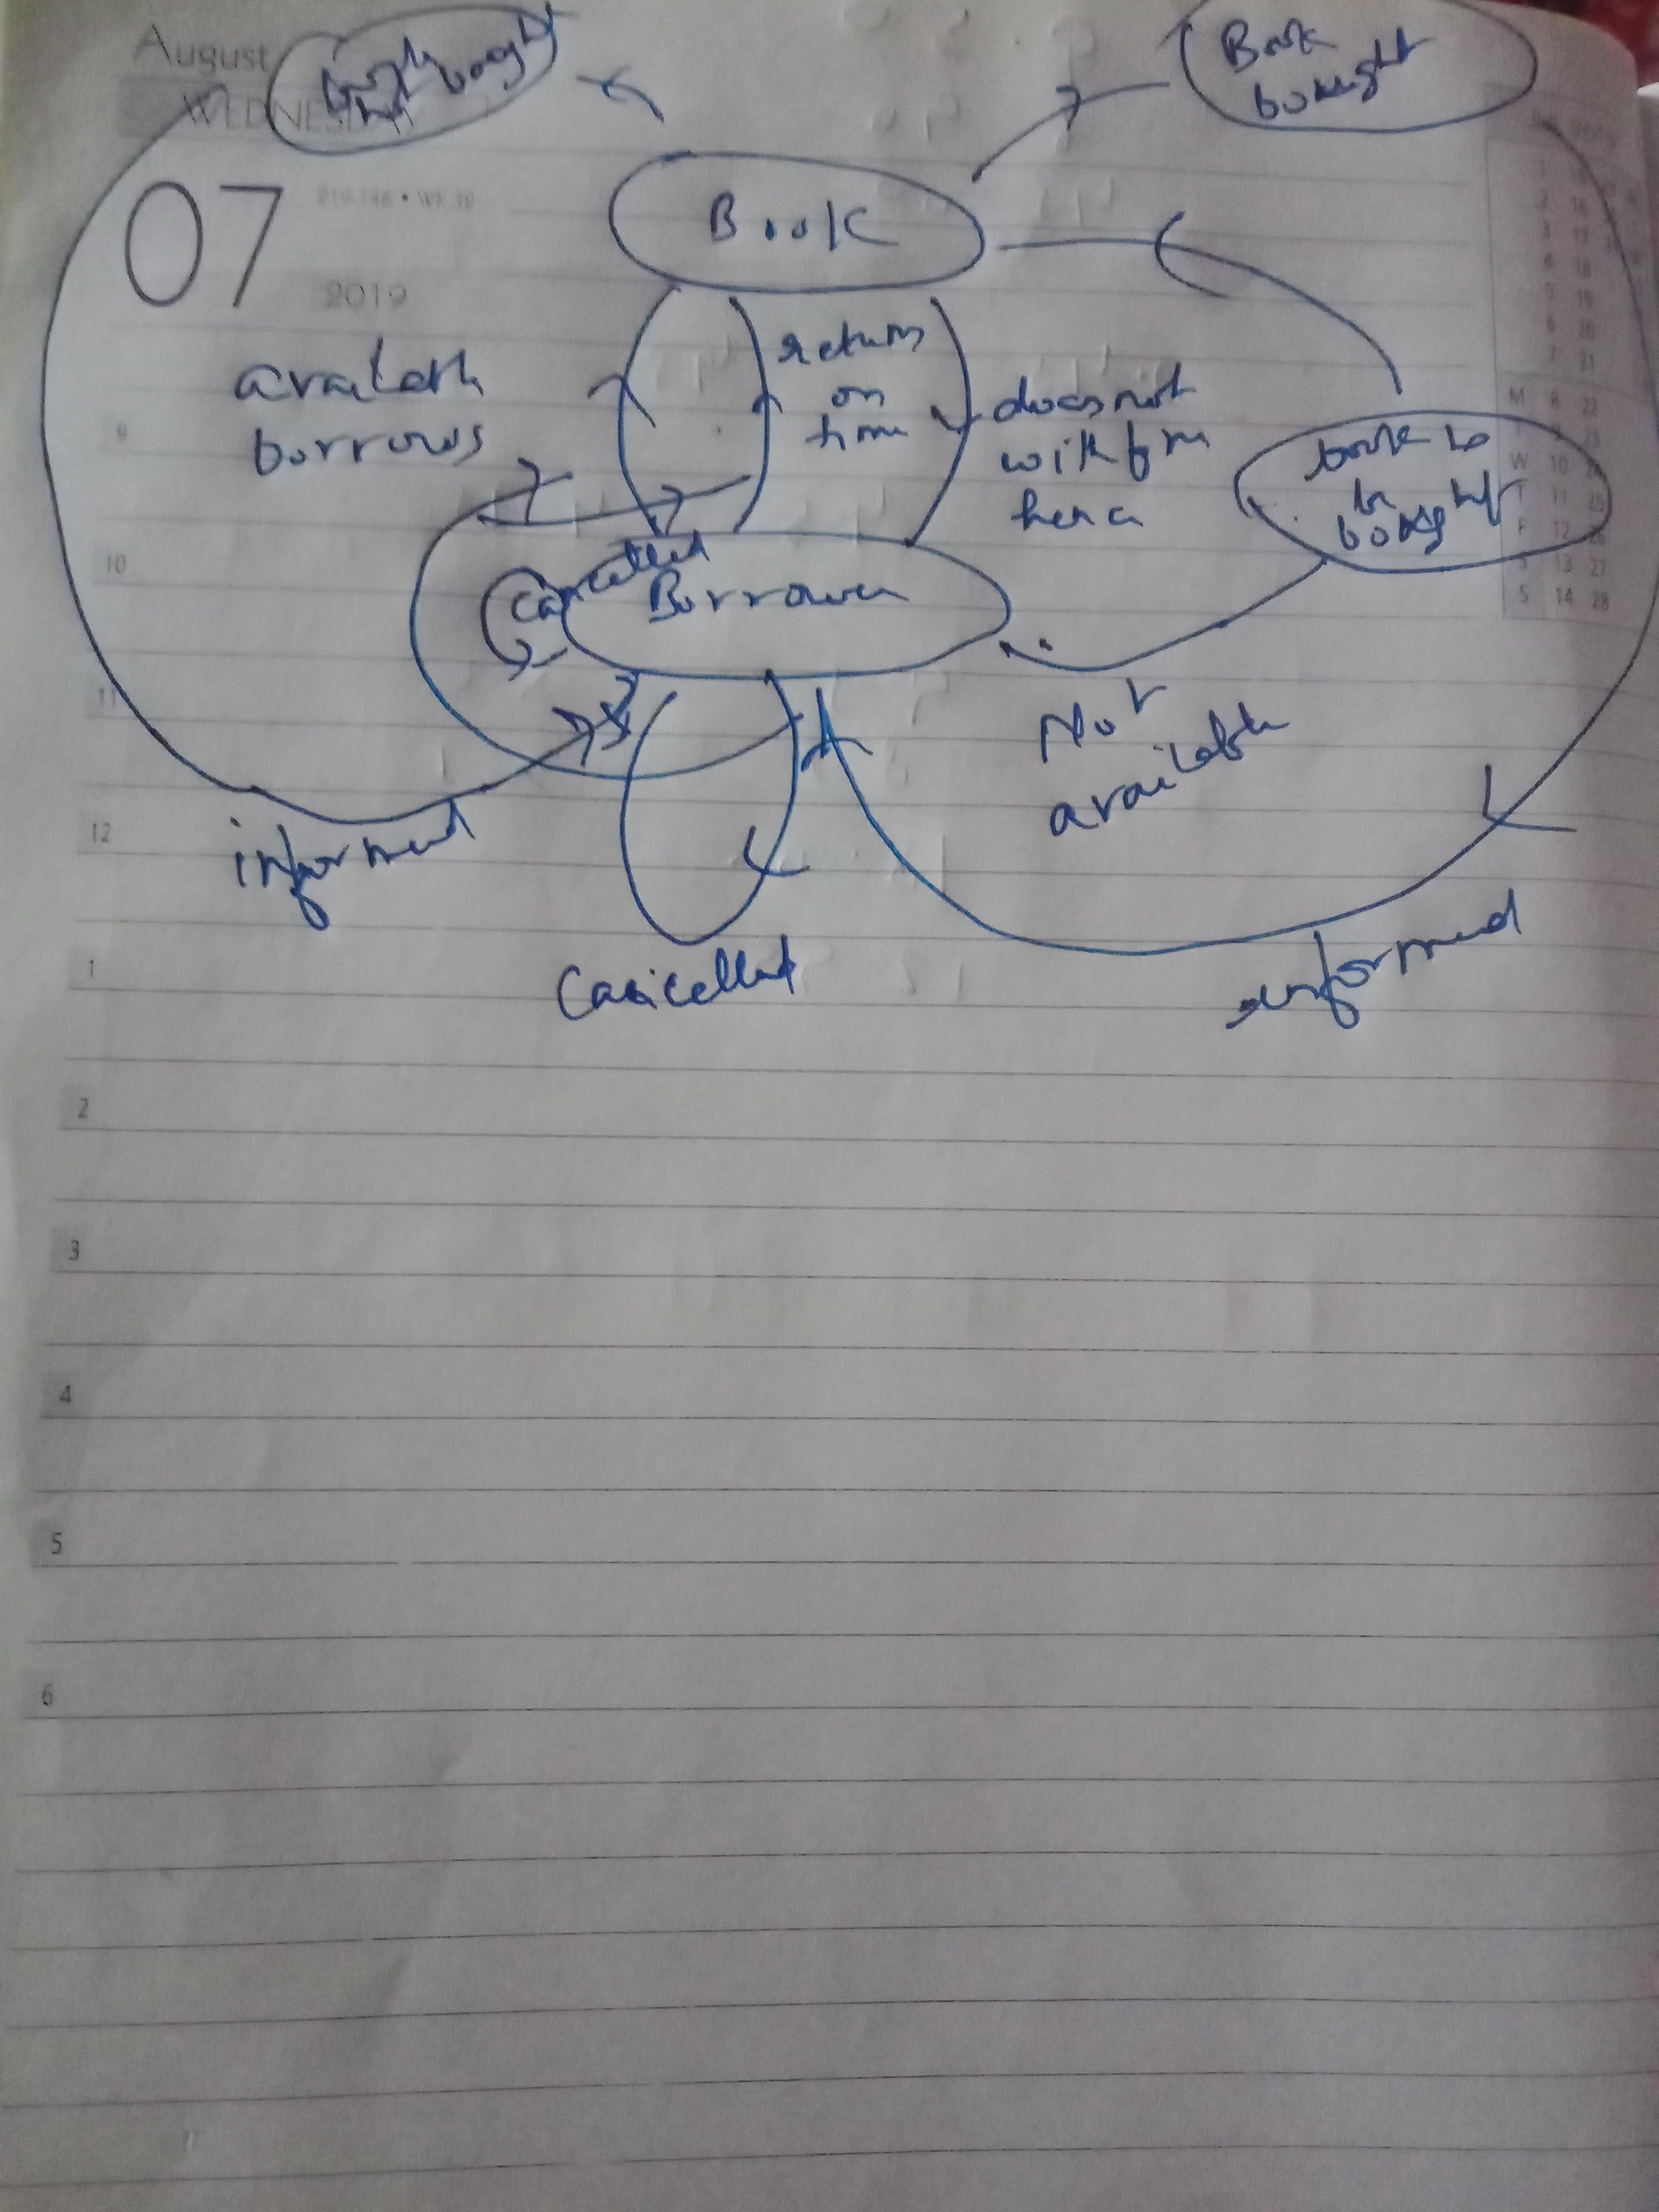 August
WEDNESDAY
Book
bought
07
2019
Book
available
borrows
return
on
time
does not
with
book to
be
bought
Cancelled
Borrower
Not
available
informed
Cancelled
informed
9
10
11
12
1
2
3
4
5
6
M 8 22
W 10
T 11 25
F 12
S 13 27
S 14 28